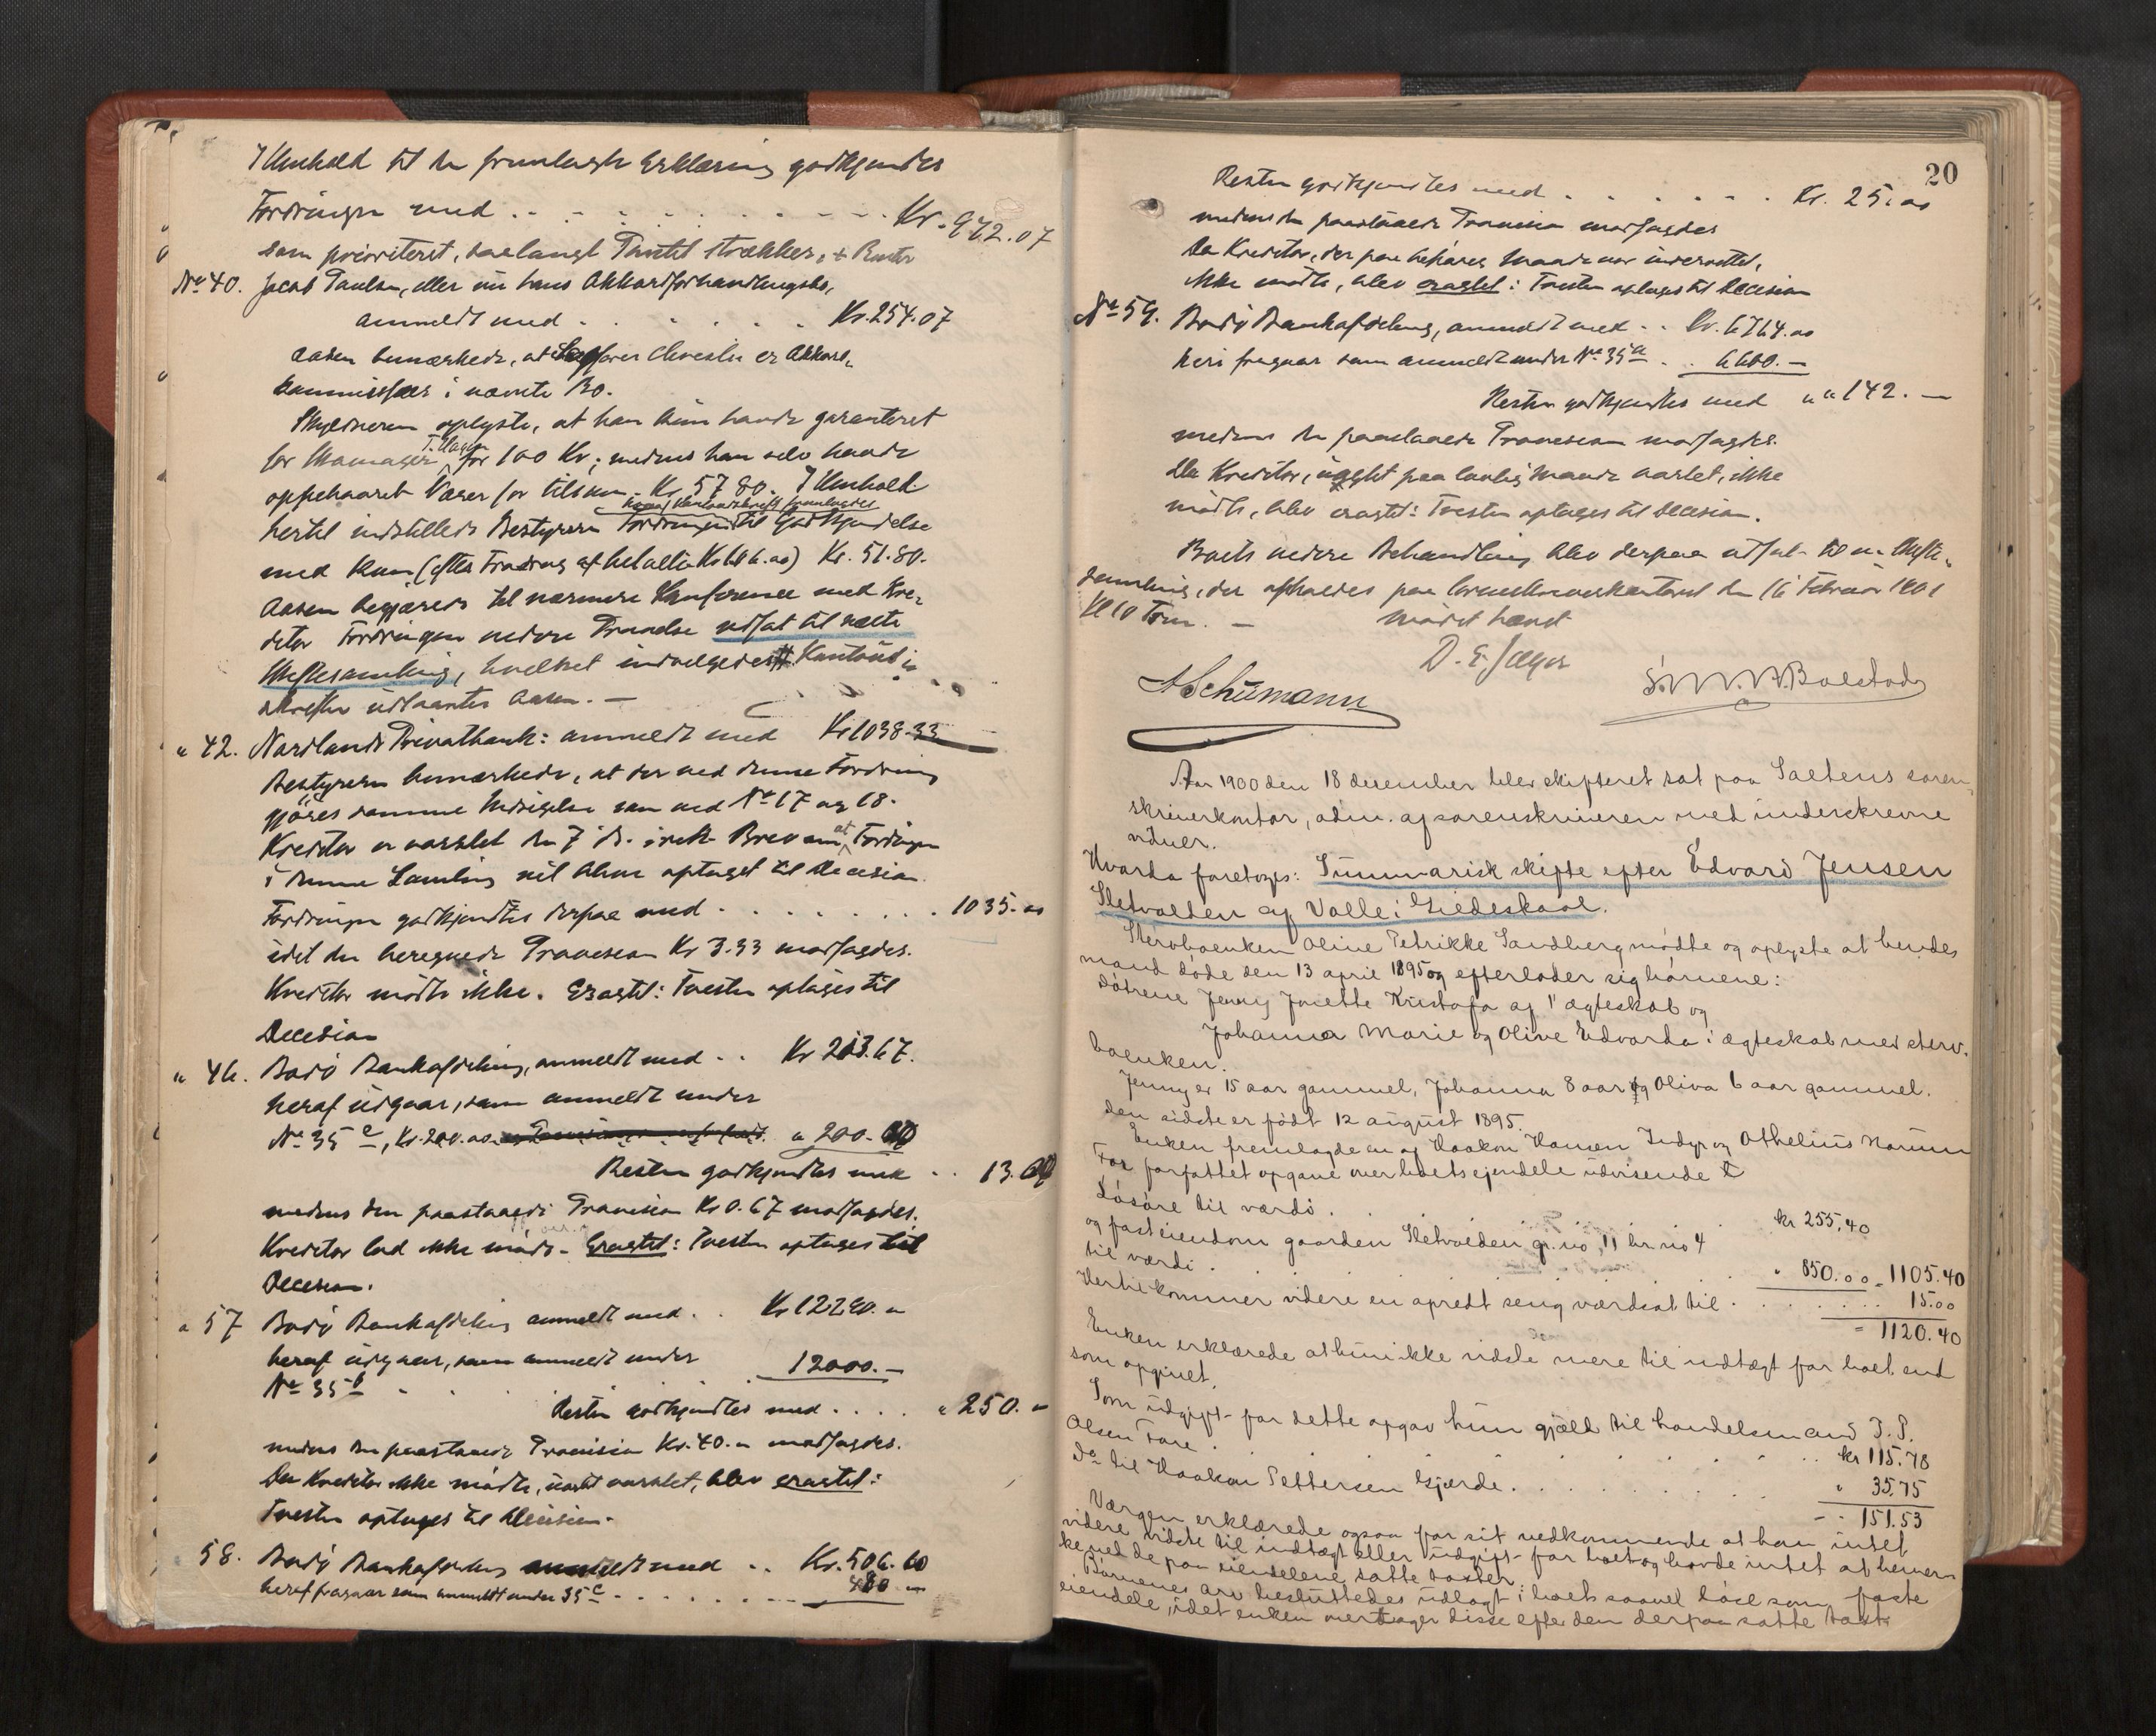 I Henhold til den fremlagte Erklæring godkjendtes
Fordringen med . . . . . . . . . Kr. 972.07
som prioriteret, saalangt Pantet strækker, + Renter
No 40. Jacob Paulsen, eller nu hans Akkordforhandlingsbo,
anmeldt med . . . . . . Kr. 254.07
Aasen bemærkede, at er Akkord-
kommissær i nævnte Bo.
Skyldneren oplyste, at han kun havde garanteret
for Manager for 100 Kr; medens han selv havde
oppebaaret Varer for tilsam. Kr. 57 80. I Henhold
hertil indstillede Bestyreren Fordringen til Godkjendelse
med kun (efter Fradrag af betalte Kr 6.00) Kr. 51.80.
Aasen begjærede til nærmere Konference med Kre-
ditor Fordringens videre Prøvelse udsat til næste
Skiftesamling, hvilket indvilgedes. Kontoudtog
udlaantes Aasen. —
" 42. Nordlands Privatbank: anmeldt med Kr 1038.33
Bestyreren bemærkede, at der ved denne Fordring
gjøres samme Indsigelse som ved No 17 og 18.
Kreditor er varslet den 7 ds. i rek. Brev om at Fordringen
i denne Samling vil blive optaget til Decision
Fordringen godkjendtes derpaa med . . . . . . . 1035.00
idet den beregnede Provision Kr 3.33 modsagdes.
Kreditor mødte ikke. Eragtet: Tvisten optages til
Decision
" 46. Bodø Bankafdeling, anmeldt med . . Kr 213.67.
heraf udgaar, som anmeldt under
No 35 e, Kr. 200.00 " 200.00
Resten godkjendtes med . . 13.00
medens den paastaaede Provision Kr 0.67 modsagdes.
Kreditor lod ikke møde. Eragtet: Tvisten optages til
Decision.
" 57 Bodø Bankafdeling anmeldt med . . Kr 12290.00
heraf udgaar, som anmeldt under
No 35 b . . . 12000.—
Resten godkjendtes med . . . . " 250.00
medens den paastaaede Provision Kr. 40.00 modsagdes.
Da Kreditor ikke mødte, uagtet varslet, blev eragtet:
Tvisten optages til Decision.
" 58. Bodø Bankafdeling anmeldt med . . Kr. 506.60
heraf fragaar som anmeldt under 35 c . . . . . 480.00
20
Resten godkjendtes med . . . . . . Kr. 25.00
medens den paastaaede Provision modsagdes
Da Kreditor, der paa behørig Maade var underrettet,
ikke mødte, blev eragtet: Tvisten optages til Decision
No 59. Bodø Bankafdeling, anmeldt med . . Kr. 6764.00
heri fragaar som anmeldt under No 35 a . . 6600.—
Resten godkjendtes med " " 142.—
medens den paastaaede Provision modsagdes.
Da Kreditor, uagtet paa lovlig Maade varslet, ikke
mødte, blev eragtet: Tvisten optages til Decision.
Boets videre Behandling blev derpaa udsat til en Skifte-
samling, der afholdes paa Sorenskriverkontoret den 16 Februar 1901
Kl 10 Form. — Mødet hævet
A Schümann D. E. Jæger Bolstad
Aar 1900 den 18 desember blev skifteret sat paa Saltens soren-
skriverkontor, adm. af sorenskriveren med underskrevne
vidner.
Hvorda foretoges: Summarisk skifte efter Edvard Jensen
Sletvolden af Valle i Gildeskaal.
Stervboenken Oline Petrikke Sandberg mødte og oplyste at hendes
mand døde den 13 april 1895 og efterlader sig børnene:
Døtrene Jenny Josette Kristofa af 1ste ægteskab og
Johanna Marie og Olive Edvarda i ægteskab med sterv-
boenken.
Jenny er 15 aar gammel, Johanna 8 aar og Oliva 6 aar gammel.
den sidste er født 12 august 1895.
Enken fremlagde en af Haakon Hansen Indyr og Othelius Marius
Fore forfattet opgave over boets ejendele udvisende
Løsøre til værdi . . . . . . . kr 255.40
og fast eiendom gaarden Sletvolden gr. no 11 br. no 4
til værdi . . . . . . . . " 850.00 = 1105.40
Hertil kommer videre en opredt seng værdsat til . . . . . . 15.00
= 1120.40
Enken erklærede at hun ikke vidste mere til indtægt for boet end
som opgivet.
Som udgift for dette opgav hun gjæld til handelsmand J. P.
Olsen Fore . . . . . . . . . . kr 115.78
Do til Haakon Pettersen Gjærde . . . . . . " 35.75
151.53
Værgen erklærede ogsaa for sit vedkommende at han intet
videre vidste til indtægt eller udgift for boet og havde intet at bemær-
ke ved de paa eiendelene satte taxter.
Børnenes arv besluttedes udlagt i boets saavel løse som faste
eiendele, idet enken overtager disse efter den derpaa satte taxt